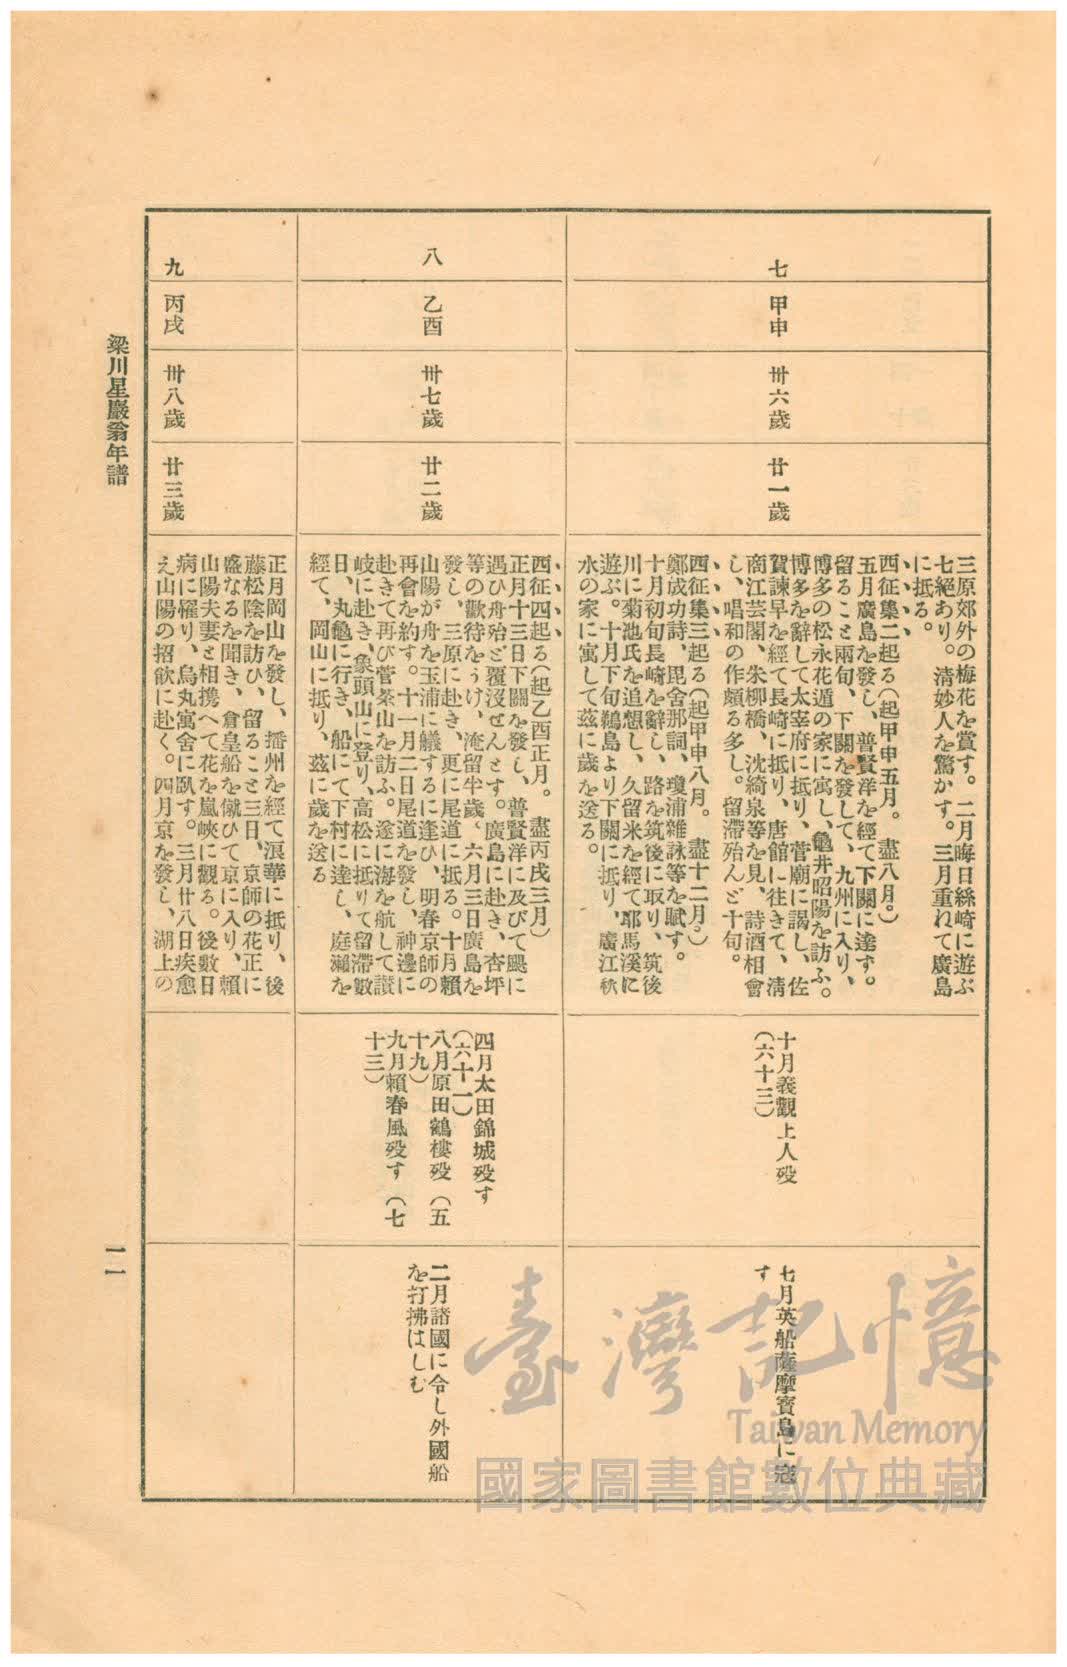 七
甲申
卅六歲
廿一歲
三原郊外の梅花を賞す。二月晦日絲崎に遊ぶ
七絕あり。淸妙人を驚かす。三月重ねて廣島
に抵る。
西征集二起る(起甲申五月。盡八月。)
五月廣島を發し、普賢洋を經て下關に達す。
留ること兩旬、下關を發して、九州に入り、
博多の松永花遁の家に寓し、龜井昭陽を訪ふ。
博多を辭して太宰府に抵り、菅廟に謁し、佐
賀諫早を經て長崎に抵り、唐館に往きて、淸
商江芸閣、朱柳橋、沈綺泉等を見、詩酒相會
し、唱和の作頗る多し。留滯殆んど十旬。
西征集三起る(起甲申八月。盡十二月。)
鄭成功詩、毘舍那詞、瓊浦雜詠等を賦す。
十月初旬長崎を辭し、路を筑後に取り、筑後
川に菊池氏を追想し、久留米を經て耶馬溪に
遊ぶ。十月下旬鵜島より下關に抵り、廣江秋
水の家に寓して玆に歲を送る。
十月義觀上人歿
(六十三)
七月英船薩摩寶島に寇
す
八
乙酉
卅七歲
廿二歲
西征四起る(起乙酉正月。盡丙戌三月)
正月十三日下關を發し、普賢洋に及びて颶に
遇ひ舟殆ど覆沒せんとす。廣島に赴き、杏坪
等の歡待をうけ、淹留半歲、六月三日廣島を
發し、三原に赴き、更に尾道に抵る。十月賴
山陽が舟を玉浦に艤するに逢ひ、明春京師の
再會を約す。十一月二日尾道を發し、神邊に
赴きて再び菅茶山を訪ふ。遂に海を航して讃
岐に赴き、象頭山に登り、高松に抵りて留滯數
日、丸龜に行き、船にて下村に達し、庭瀨を
經て、岡山に抵り、玆に歲を送る
四月太田錦城歿す
(六十一)
八月原田鶴樓歿(五
十九)
九月賴春風歿す(七
十三)
二月諸國に令し外國船
を打拂はしむ
九
丙戌
卅八歲
廿三歲
正月岡山を發し、播州を經て浪華に抵り、後
藤松陰を訪ひ、留ること三日、京師の花正に
盛なるを聞き、倉皇船を僦ひて京に入り、賴
山陽夫妻と相携へて花を嵐峽に觀る。後數日
病に罹り、烏丸寓舍に臥す。三月廿八日疾愈
え山陽の招飮に赴く。四月京を發し、湖上の
梁川星巖翁年譜
一一
臺灣記憶
Taiwan Memory
國家圖書館數位典藏